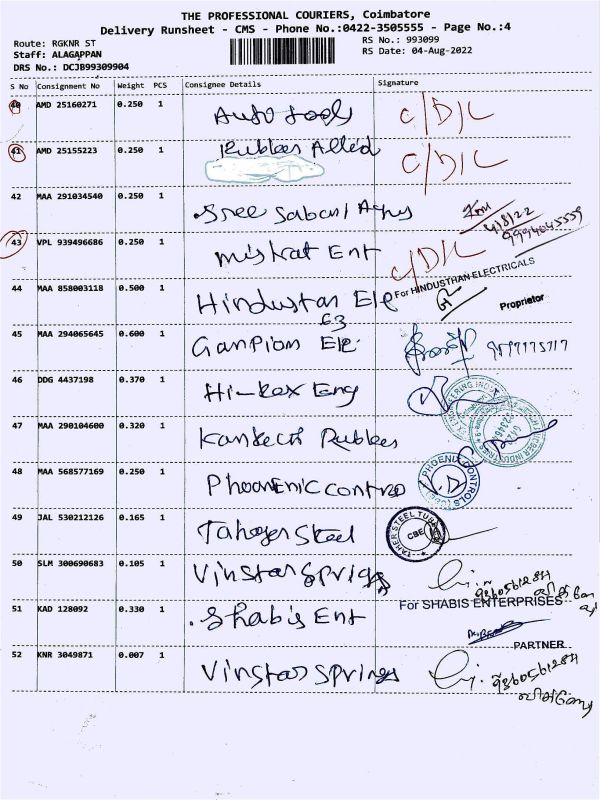 THE PROFESSIONAL COURIERS, Coimbatore
Delivery Runsheet - CMS - Phone No.:0422-3505555 - Page No.:4
Route: RGKNR ST
RS No.: 993099
Staff: ALAGAPPAN
RS Date: 04-Aug-2022
DRS No.: DCJB99309904
S No Consignment No Weight PCS Consignee Details Signature
40 AMD 25160271 0.250 1 Auto tools C/D/L
41 AMD 25155223 0.250 1 Rubbers Allied C/D/L
42 MAA 291034540 0.250 1 Sree Sabari 4/8/22 9994045559
43 VPL 939496686 0.250 1 Mistrat Ent C/D/L
44 MAA 858003118 0.500 1 Hindustan Ele For HINDUSTHAN ELECTRICALS
Proprietor
63
45 MAA 294065645 0.600 1 Ganpion Ele
46 DDG 4437198 0.370 1 Hi-Rex Eng
47 MAA 290104600 0.320 1 Rubbers
48 MAA 568577169 0.250 1 Phoenic Contro PHOENIX CONTROLS
49 JAL 530212126 0.165 1 Taher Steel TAHER STEEL CBE
50 SLM 300690683 0.105 1 Vinstar Springs
For SHABIS ENTERPRISES
51 KAD 128092 0.330 1 Shabis Ent
PARTNER
52 KNR 3049871 0.007 1 Vinstar Springs